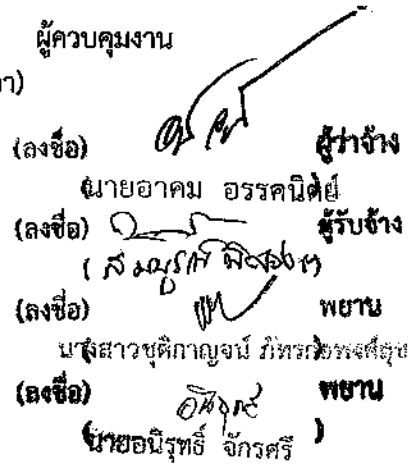 ผู้ควบคุมงาน
า)
(ลงชื่อ) ผู้ว่าจ้าง
(นายอาคม อรรคนิตย์
(ลงชื่อ) ผู้รับจ้าง
( )
(ลงชื่อ) พยาน
นางสาวชุติกาญจน์
(ลงชื่อ) พยาน
(นายอนิรุทธิ์ จักรศรี )